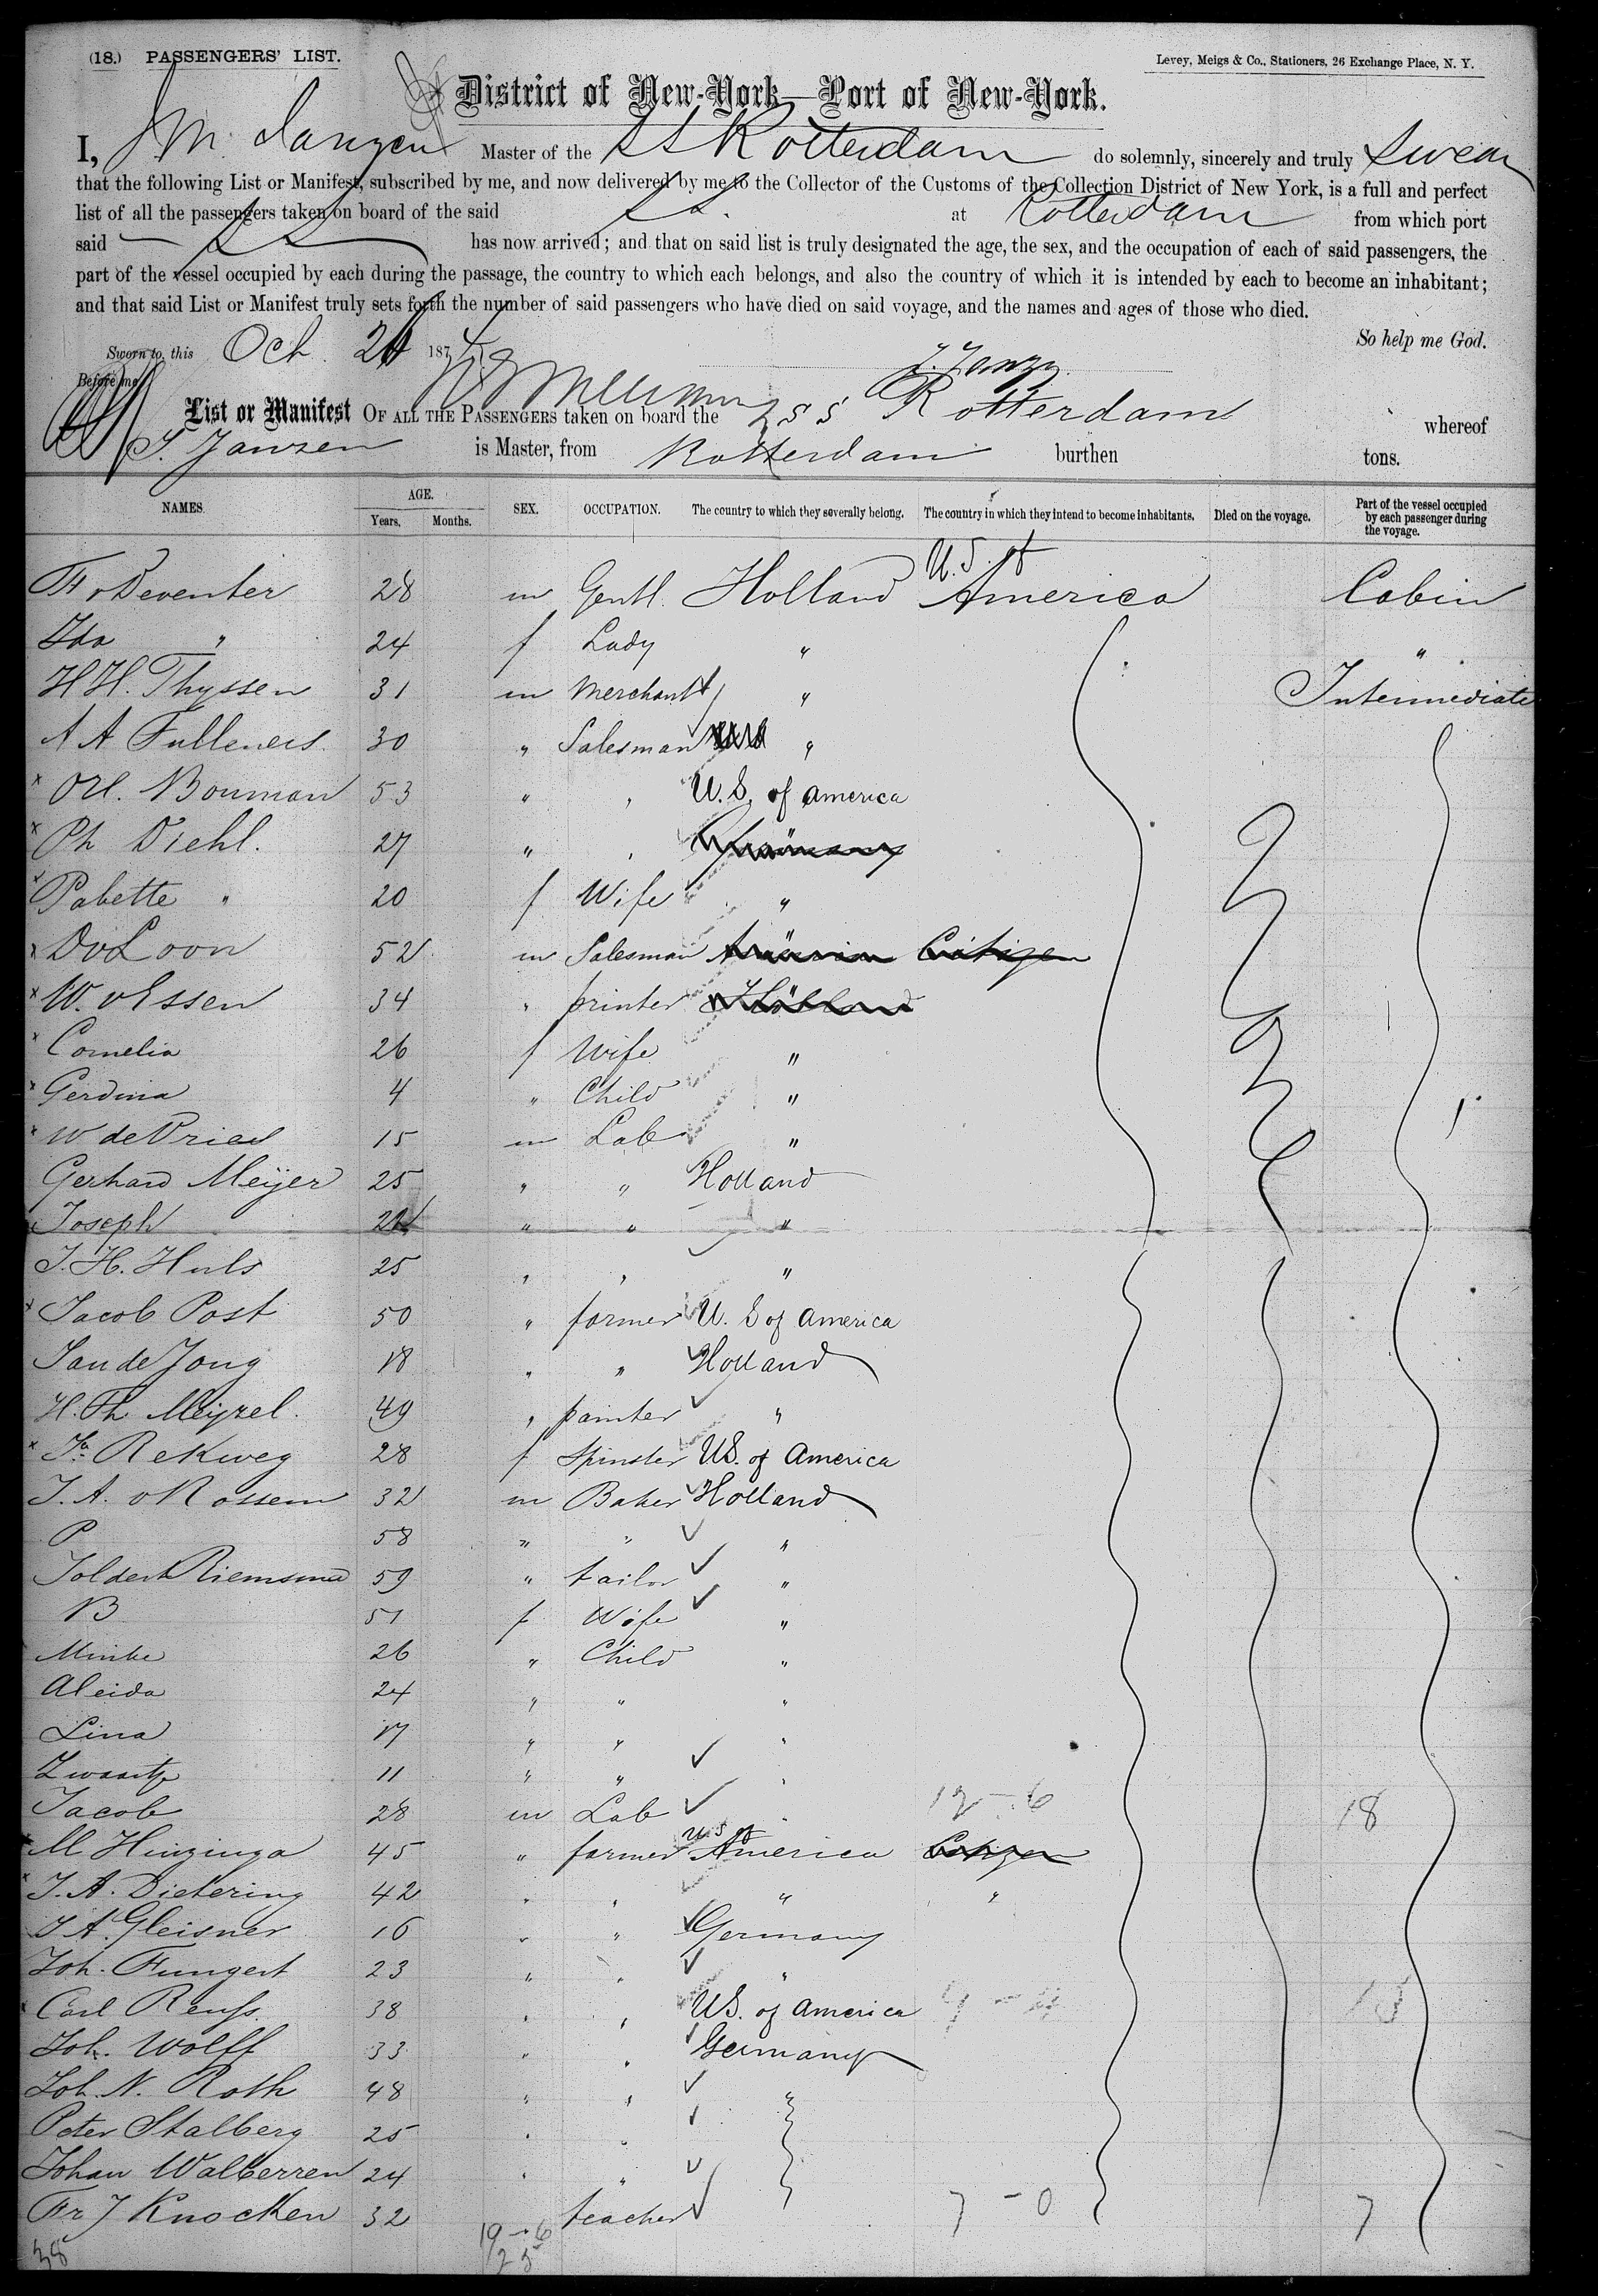 (18.) PASSENGERS' LIST.
Levey, Meigs & Co., Stationers, 26 Exchange Place, N. Y.
District of New-York—Port of New-York.
I, J M. Janzen Master of the SS Rotterdam do solemnly, sincerely and truly swear
that the following List or Manifest, subscribed by me, and now delivered by me to the Collector of the Customs of the Collection District of New York, is a full and perfect
list of all the passengers taken on board of the said SS. at Rotterdam from which port
said SS has now arrived; and that on said list is truly designated the age, the sex, and the occupation of each of said passengers, the
part of the vessel occupied by each during the passage, the country to which each belongs, and also the country of which it is intended by each to become an inhabitant;
and that said List or Manifest truly sets forth the number of said passengers who have died on said voyage, and the names and ages of those who died.
So help me God.
Sworn to, this Oct. 187
Before me
List or Manifest OF ALL THE PASSENGERS taken on board the SS Rotterdam whereof
J. Janzen is Master, from Rotterdam burthen tons.
NAMES. AGE. Years. Months. SEX. OCCUPATION. The country to which they severally belong. The country in which they intend to become inhabitants. Died on the voyage. Part of the vessel occupied by each passenger during the voyage.
Fr v Deventer 28 m Gentl. Holland U.S. of America Cabin
Ida " 24 f Lady " "
H H. Thyssen 31 m Merchant " Intermediate
A A Fulleners 30 " Salesman "
Bouman 53 " " U.S. of America
Ph Diehl. 27 " " Germany
Babette " 20 f Wife "
D v Loon 52 m Salesman American Citizen
W. v Essen 34 " printer Holland
Cornelia 26 f Wife "
Gerdina 4 " Child "
W de Vries 15 m Lab "
Gerhard Meijer 25 " " Holland
Joseph " " "
J. H. Huls 25 " " "
Jacob Post 50 " farmer U. S of America
Jan de Jong 18 " " Holland
H. Th Meijzel. 49 " painter "
Ja. Rekweg 28 f Spinster US. of America
J. A. v Rossem 32 m Baker Holland
P 58 " " "
Toldert Riemsma 59 " tailor "
B 51 f Wife "
Minke 26 " Child "
Aleida 24 " " "
Lina 17 " " "
Zwaantje 11 " " "
Jacob 28 m Lab " 12-6 18
M Hinzinga 45 " farmer U S of America Citizen
J. A. Dietering 42 " " " "
J A. Gleisner 16 " " Germany
Joh. Fungert 23 " " "
Carl Reuss 38 " " US. of America
Joh. Wolff 33 " " Germany
Joh. N. Roth 48 " " "
Peter Stalberg 25 " "
Johan Walberren 24 " "
Fr J Knocken 32 teacher 7-0 7
38 19-6
25